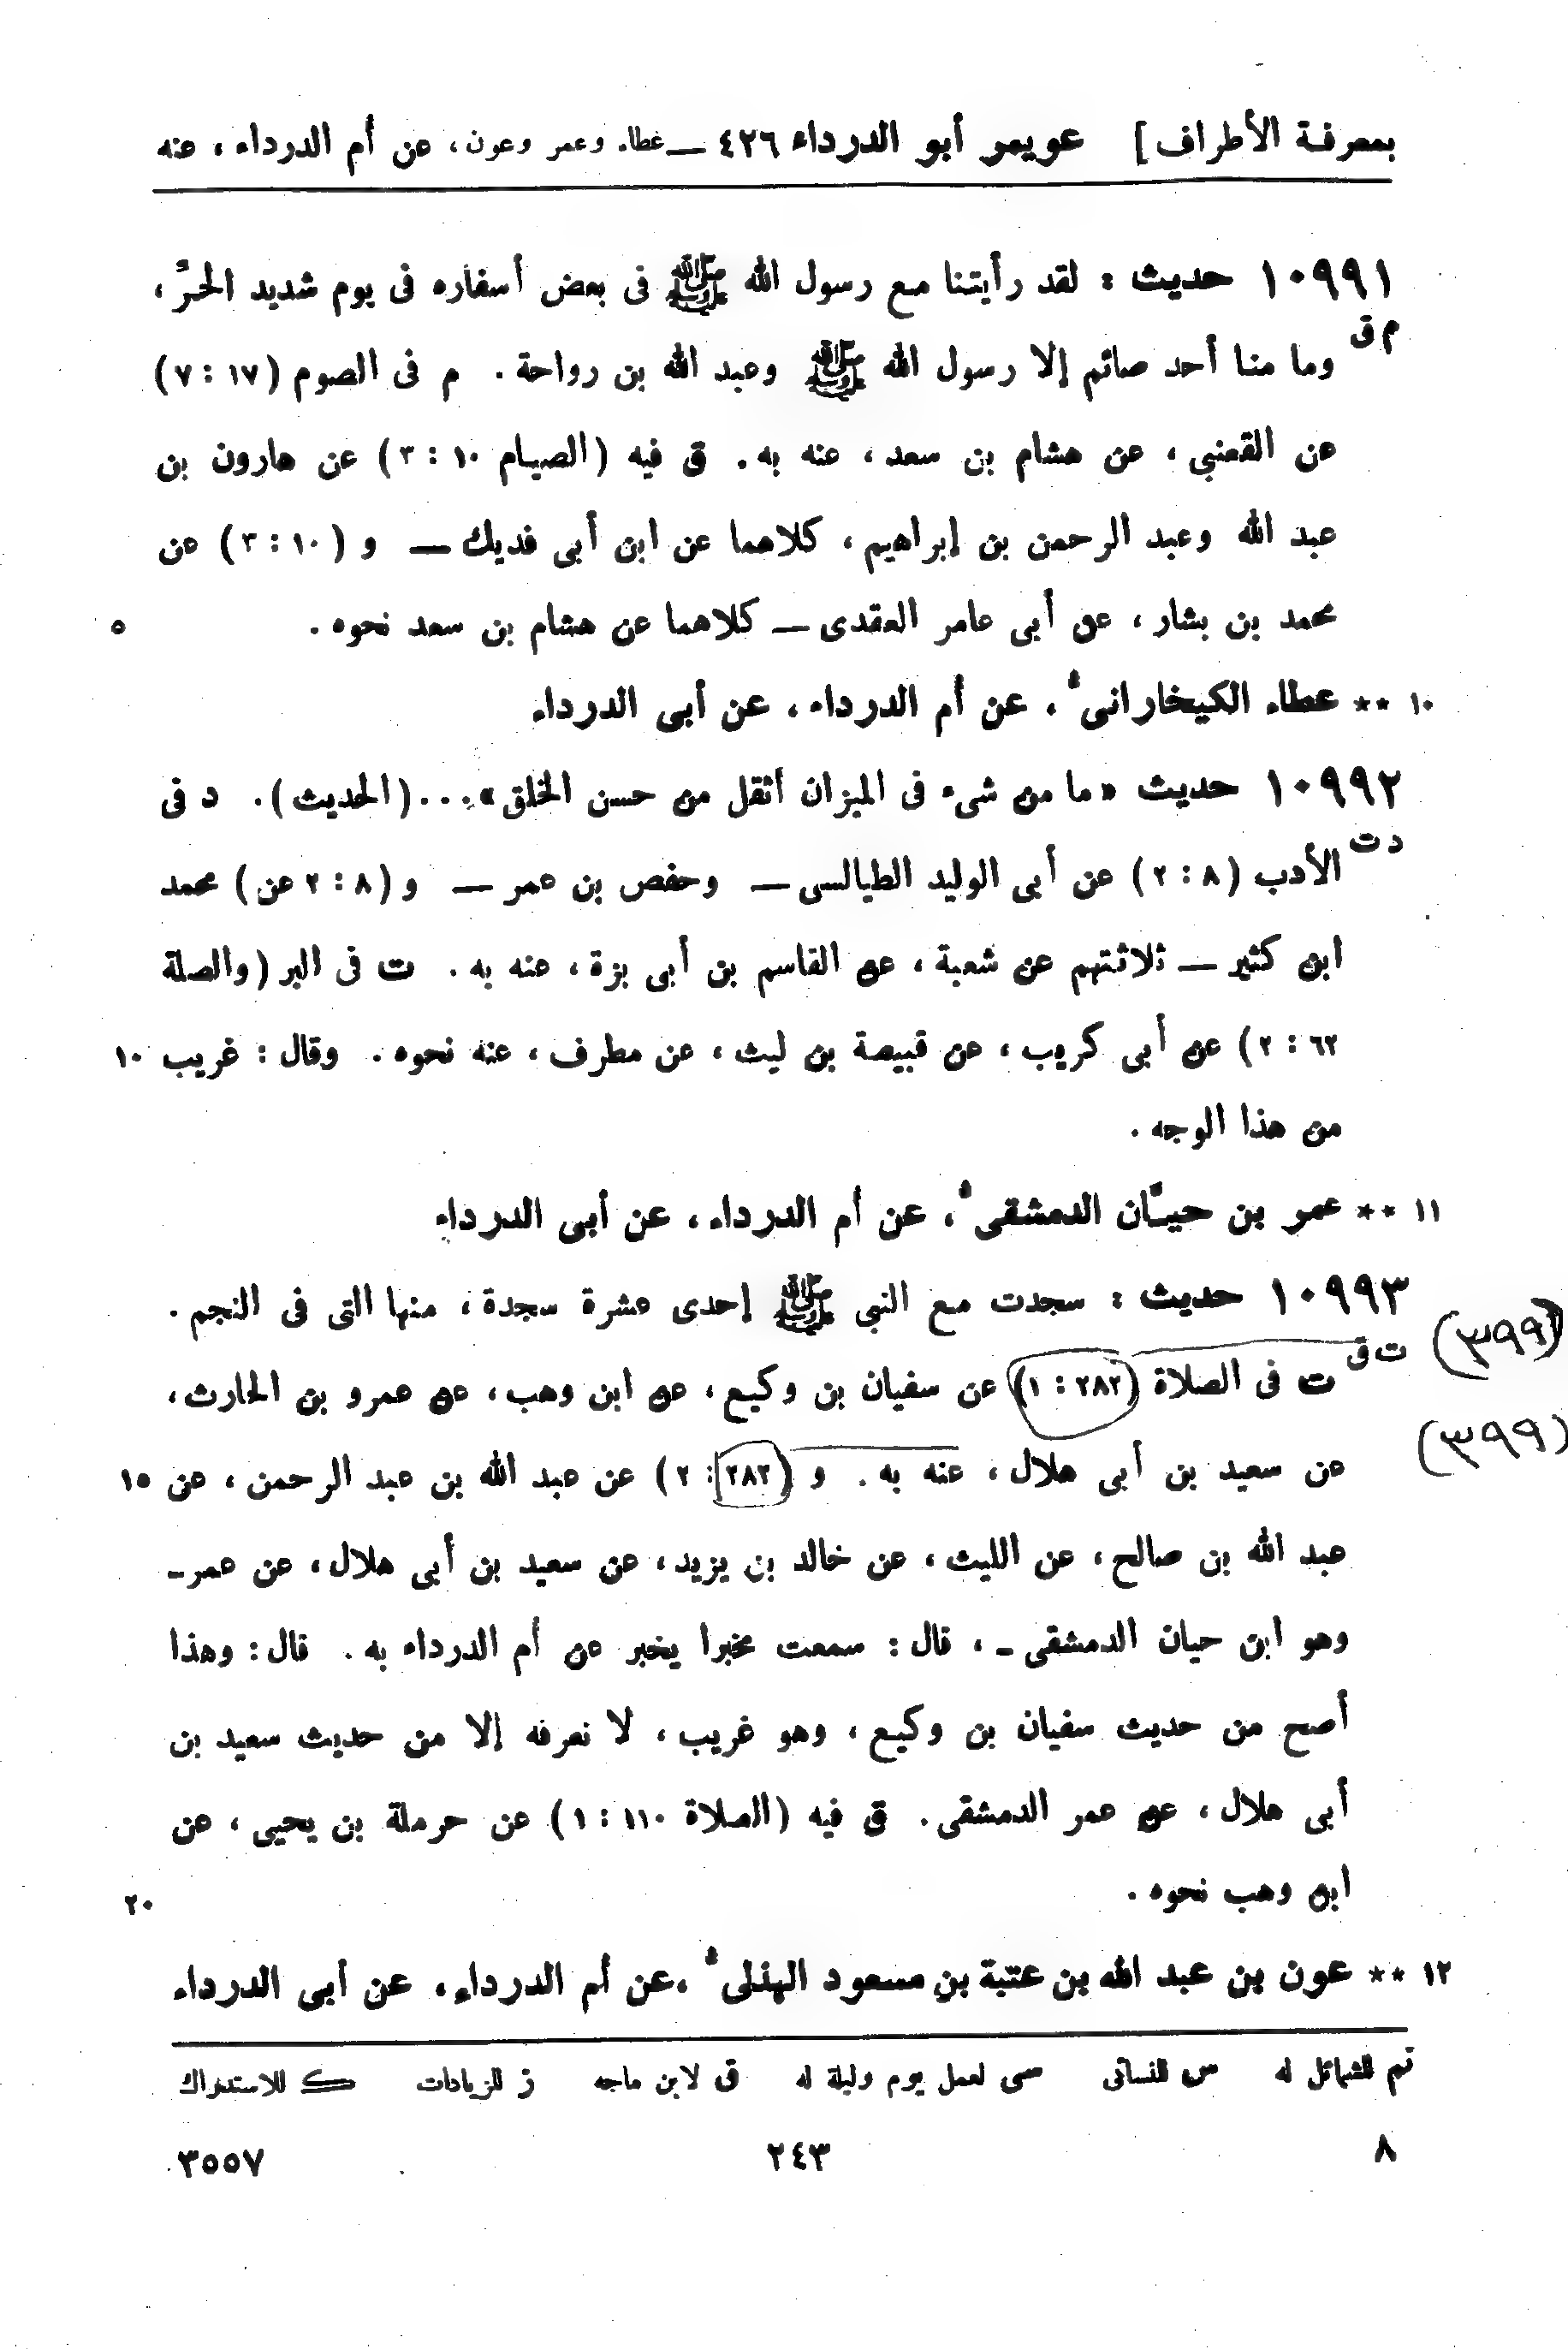 بمعرفة الأطراف] عويمر أبو الدرداء ٤٢٦ — عطاء وعمر وعون، عن أم الدرداء، عنه
١٠٩٩١ حديث : لقد رأيتنا مع رسول الله ﷺ فى بعض أسفاره فى يوم شديد الحرّ،
م ق
وما منا أحد صائم إلا رسول الله ﷺ وعبد الله بن رواحة . م فى الصوم (١٧ : ٧)
عن القعنبى، عن هشام بن سعد، عنه به. ق فيه (الصيام ١٠ : ٣) عن هارون بن
عبد الله وعبد الرحمن بن إبراهيم، كلاهما عن ابن أبى فديك — و (١٠ : ٣) عن
محمد بن بشار، عن أبى عامر العقدى — كلاهما عن هشام بن سعد نحوه . ٥
١٠ ** عطاء الكيخارانى، عن أم الدرداء، عن أبى الدرداء
١٠٩٩٢ حديث «ما من شىء فى الميزان أثقل من حسن الخلق»... (الحديث). د فى
د ت
الأدب (٨ : ٢) عن أبى الوليد الطيالسى — وحفص بن عمر — و (٨ : ٢ عن) محمد
ابن كثير — ثلاثتهم عن شعبة، عن القاسم بن أبى بزة، عنه به . ت فى البر (والصلة
٦٢ : ٢) عن أبى كريب، عن قبيصة بن ليث، عن مطرف، عنه نحوه . وقال : غريب ١٠
من هذا الوجه .
١١ ** عمر بن حيّان الدمشقى، عن أم الدرداء، عن أبى الدرداء
١٠٩٩٣ حديث : سجدت مع النبى ﷺ إحدى عشرة سجدة، منها التى فى النجم .
(٣٩٩)
ت ق
ت فى الصلاة (٢٨٢ : ١) عن سفيان بن وكيع، عن ابن وهب، عن عمرو بن الحارث،
(٣٩٩)
عن سعيد بن أبى هلال، عنه به . و (٢٨٢ : ٢) عن عبد الله بن عبد الرحمن، عن ١٥
عبد الله بن صالح، عن الليث، عن خالد بن يزيد، عن سعيد بن أبى هلال، عن عمر -
وهو ابن حيان الدمشقى -، قال : سمعت مخبرا يخبر عن أم الدرداء به . قال : وهذا
أصح من حديث سفيان بن وكيع، وهو غريب، لا نعرفه إلا من حديث سعيد بن
أبى هلال، عن عمر الدمشقى . ق فيه (الصلاة ١١٠ : ١) عن حرملة بن يحيى، عن
ابن وهب نحوه . ٢٠
١٢ ** عون بن عبد الله بن عتبة بن مسعود الهذلى، عن أم الدرداء، عن أبى الدرداء
تم للشمائل له س للنسائى سى لعمل يوم وليلة له ق لابن ماجه ز للزيادات ك للاستدراك
٨ ٢٤٣ ٣٥٥٧